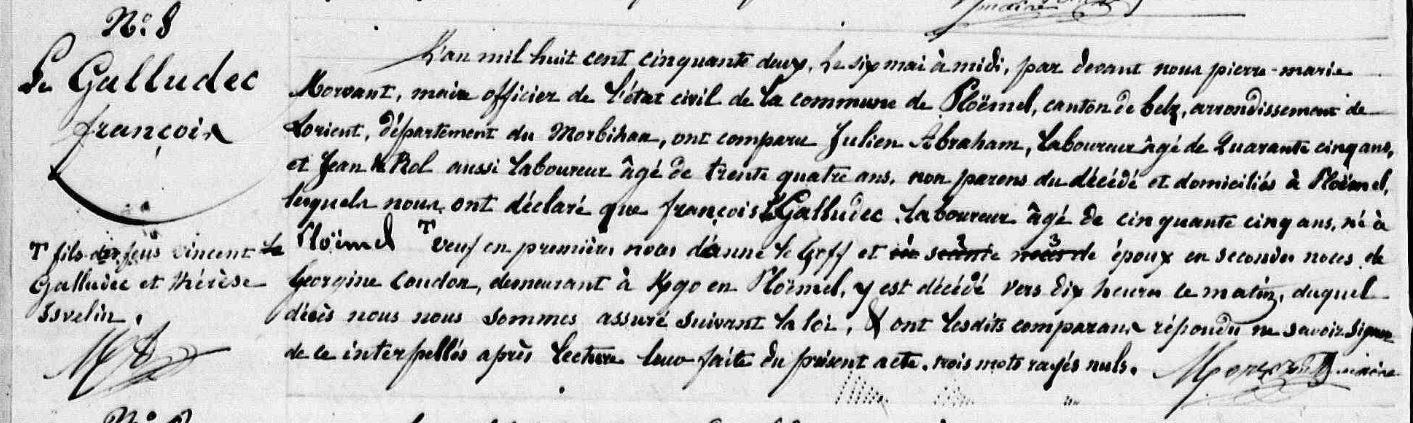 maire
N.º 8
Le Galludec
françois
L'an mil huit cent cinquante deux, le six mai à midi, par devant nous pierre-marie
Morvant, maire officier de l'état civil de la commune de Ploëmel, canton de belz, arrondissement de
Lorient, département du Morbihan, ont comparu Julien Abraham, laboureur âgé de Quarante cinq ans,
et Jean le Rol aussi laboureur âgé de trente quatre ans, non parens du décédé et domiciliés à Ploëmel,
lesquels nous ont déclaré que françois le Galludec laboureur âgé de cinquante cinq ans, né à
Ploëmel T veuf en premières noces d'anne le Goff et époux en secondes noces de
Georgine Coudon, demeurant à Kgo en Ploëmel, y est décédé vers dix heures ce matin, duquel
décès nous nous sommes assuré suivant la loi, & ont lesdits comparans répondu ne savoir signer
de ce interpellés après lecture leur faite du présent acte. trois mots rayés nuls.
Morvant maire
T fils de feus vincent le
Galludec et thérèse
Esvelin.
N.º